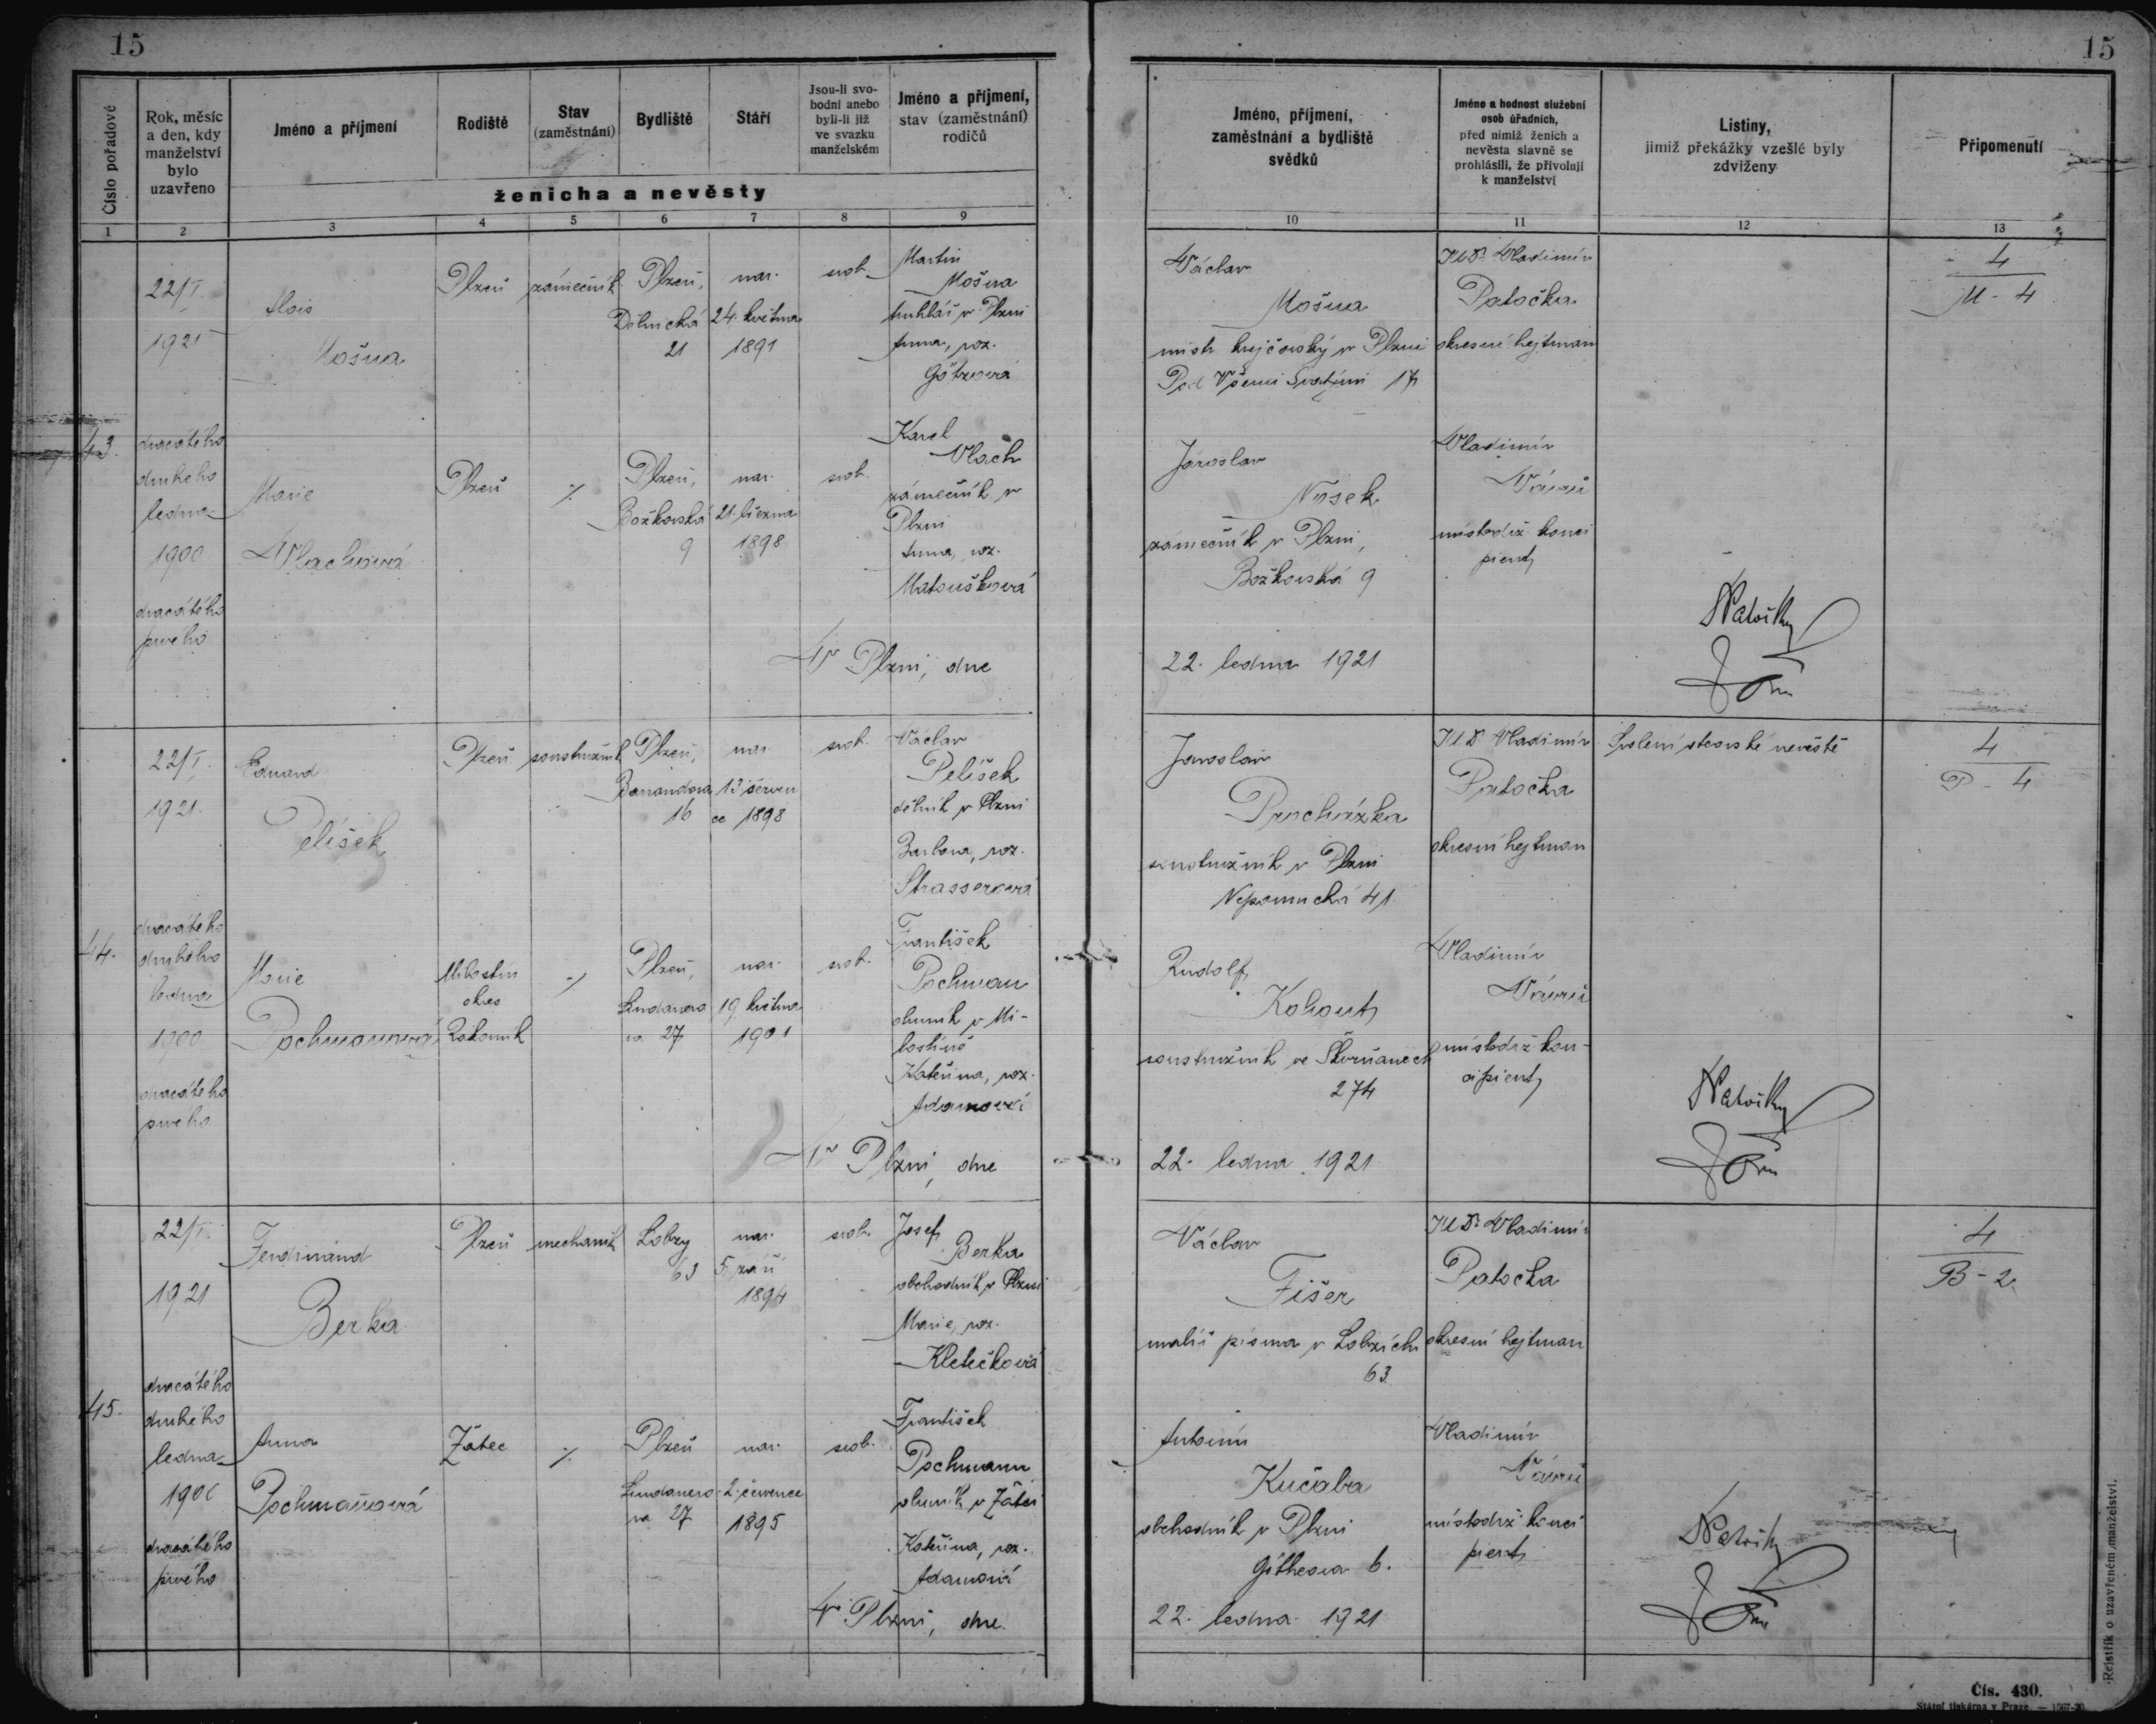 15
15
Číslo pořadové
Rok, měsíc
a den, kdy
manželství
bylo
uzavřeno
Jméno a příjmení
Rodiště
Stav
(zaměstnání)
Bydliště
Stáří
Jsou-li svo-
bodni anebo
byli-li již
ve svazku
manželském
Jméno a příjmení,
stav (zaměstnání)
rodičů
ženicha a nevěsty
Jméno, příjmení,
zaměstnání a bydliště
svědků
Jméno a hodnost služební
osob úřadních,
před nimiž ženich a
nevěsta slavně se
prohlásili, že přivolují
k manželství
Listiny,
jimiž překážky vzešlé byly
zdviženy
Připomenutí
1
2
3
4
5
6
7
8
9
10
11
12
13
43.
22/I.
1921
dvacátého
druhého
ledna
1900
dvacátého
prvého
Alois
Mošna
Plzeň
zámečník
Plzeň,
Dělnická
21
nar.
24. května
1891
svob.
Martin
Mošna
truhlář v Plzni
Anna, roz.
Götzová
Václav
Mošna
mistr krejčovský v Plzni
Pod Všemi Svatými 17
JUDr Vladimír
Patočka
okresní hejtman
4
M - 4
Marie
Vlachová
Plzeň
./.
Plzeň,
Božkovská
9
nar.
21. března
1898
svob.
Karel
Vlach
zámečník v
Plzni
Anna, roz.
Matoušková
Jaroslav
Nosek
zámečník v Plzni,
Božkovská 9
Vladimír
Vávrů
místodrž. konci
pient
V Plzni, dne
22. ledna 1921
44.
22/I.
1921.
dvacátého
druhého
ledna
1900
dvacátého
prvého
Eduard
Pelíšek
Plzeň
soustružník
Plzeň,
Barrandova
16
nar.
13 červen
ce 1898
svob.
Václav
Pelíšek
dělník v Plzni
Barbora, roz.
Strasserová
Jaroslav
Procházka
soustružník v Plzni
Nepomucká 41
JUDr Vladimír
Patočka
okresní hejtman
Svolení otcovské nevěstě
4
P - 4
Marie
Pochmanová
Milostín
okres
Rakovník
./.
Plzeň,
Lindauero
va 27
nar.
19. května
1901
svob.
František
Pochman
rolník v Mi-
lostíně
Kateřina, roz.
Adamová
Rudolf
Kohout
soustružník ve Skvrňanech
274
Vladimír
Vávrů
místodrž. kon-
cipient
V Plzni, dne
22. ledna 1921
45.
22/I.
1921
dvacátého
druhého
ledna
1900
dvacátého
prvého
Ferdinand
Berka
Plzeň
mechanik
Lobzy
63
nar.
5. září
1894
svob.
Josef
Berka
obchodník v Plzni
Marie, roz.
Kletečková
Václav
Fišer
malíř písma v Lobzích
63
JUDr Vladimír
Patočka
okresní hejtman
4
B - 2
Anna
Pochmanová
Žatec
./.
Plzeň
Lindauero-
va 27
nar.
2. července
1895
svob.
František
Pochmann
rolník v Žatci
Kateřina, roz.
Adamová
Antonín
Kučaba
obchodník v Plzni
Götheova 6.
Vladimír
Vávrů
místodrž. konci
pient
V Plzni, dne
22. ledna 1921
Rejstřík o uzavřeném manželství.
Čís. 430.
Státní tiskárna v Praze. — 1567-20